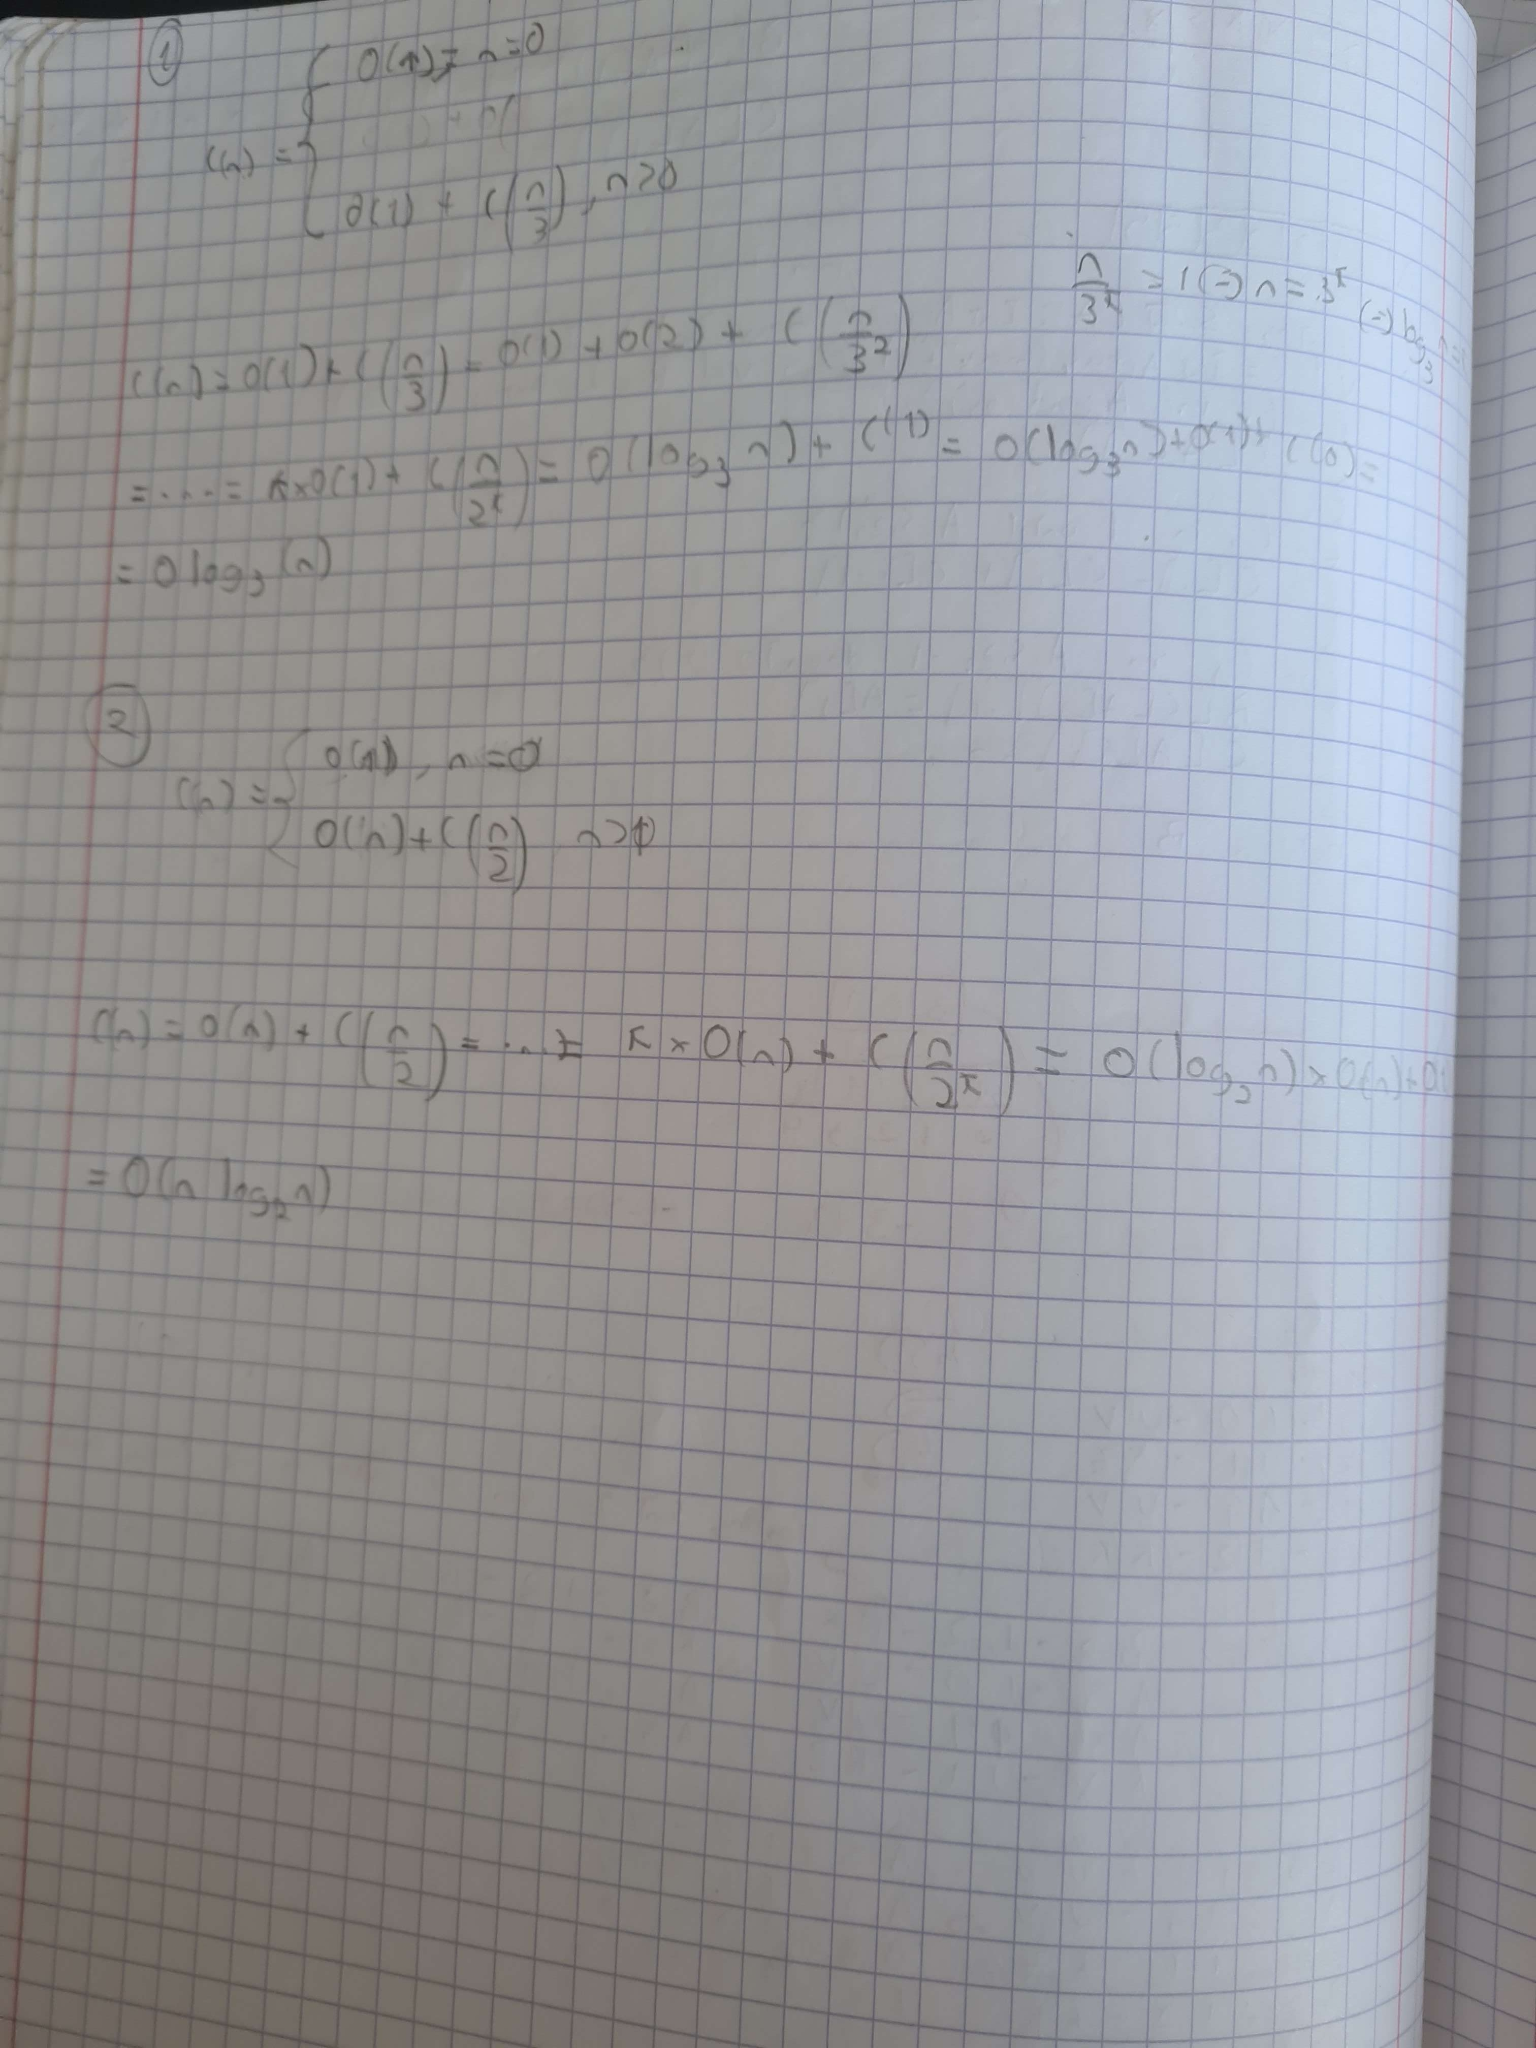 ①
O(1), n=0
C(n) = {
O(1) + C(n/3), n>0
n/3^k = 1 (=) n = 3^k (=) log_3
C(n) = O(1) + C(n/3) = O(1) + O(2) + C(n/3^2)
= ... = k×O(1) + C(n/2^k) = O(log_3 n) + C(1) = O(log_3 n) + O(1) + C(0) =
= O log_3 (n)
②
O(1), n = 0
C(n) = {
O(n) + C(n/2) n>0
C(n) = O(n) + C(n/2) = ... = k × O(n) + C(n/2^k) = O(log_2 n) × O(n) +
= O(n log_2 n)